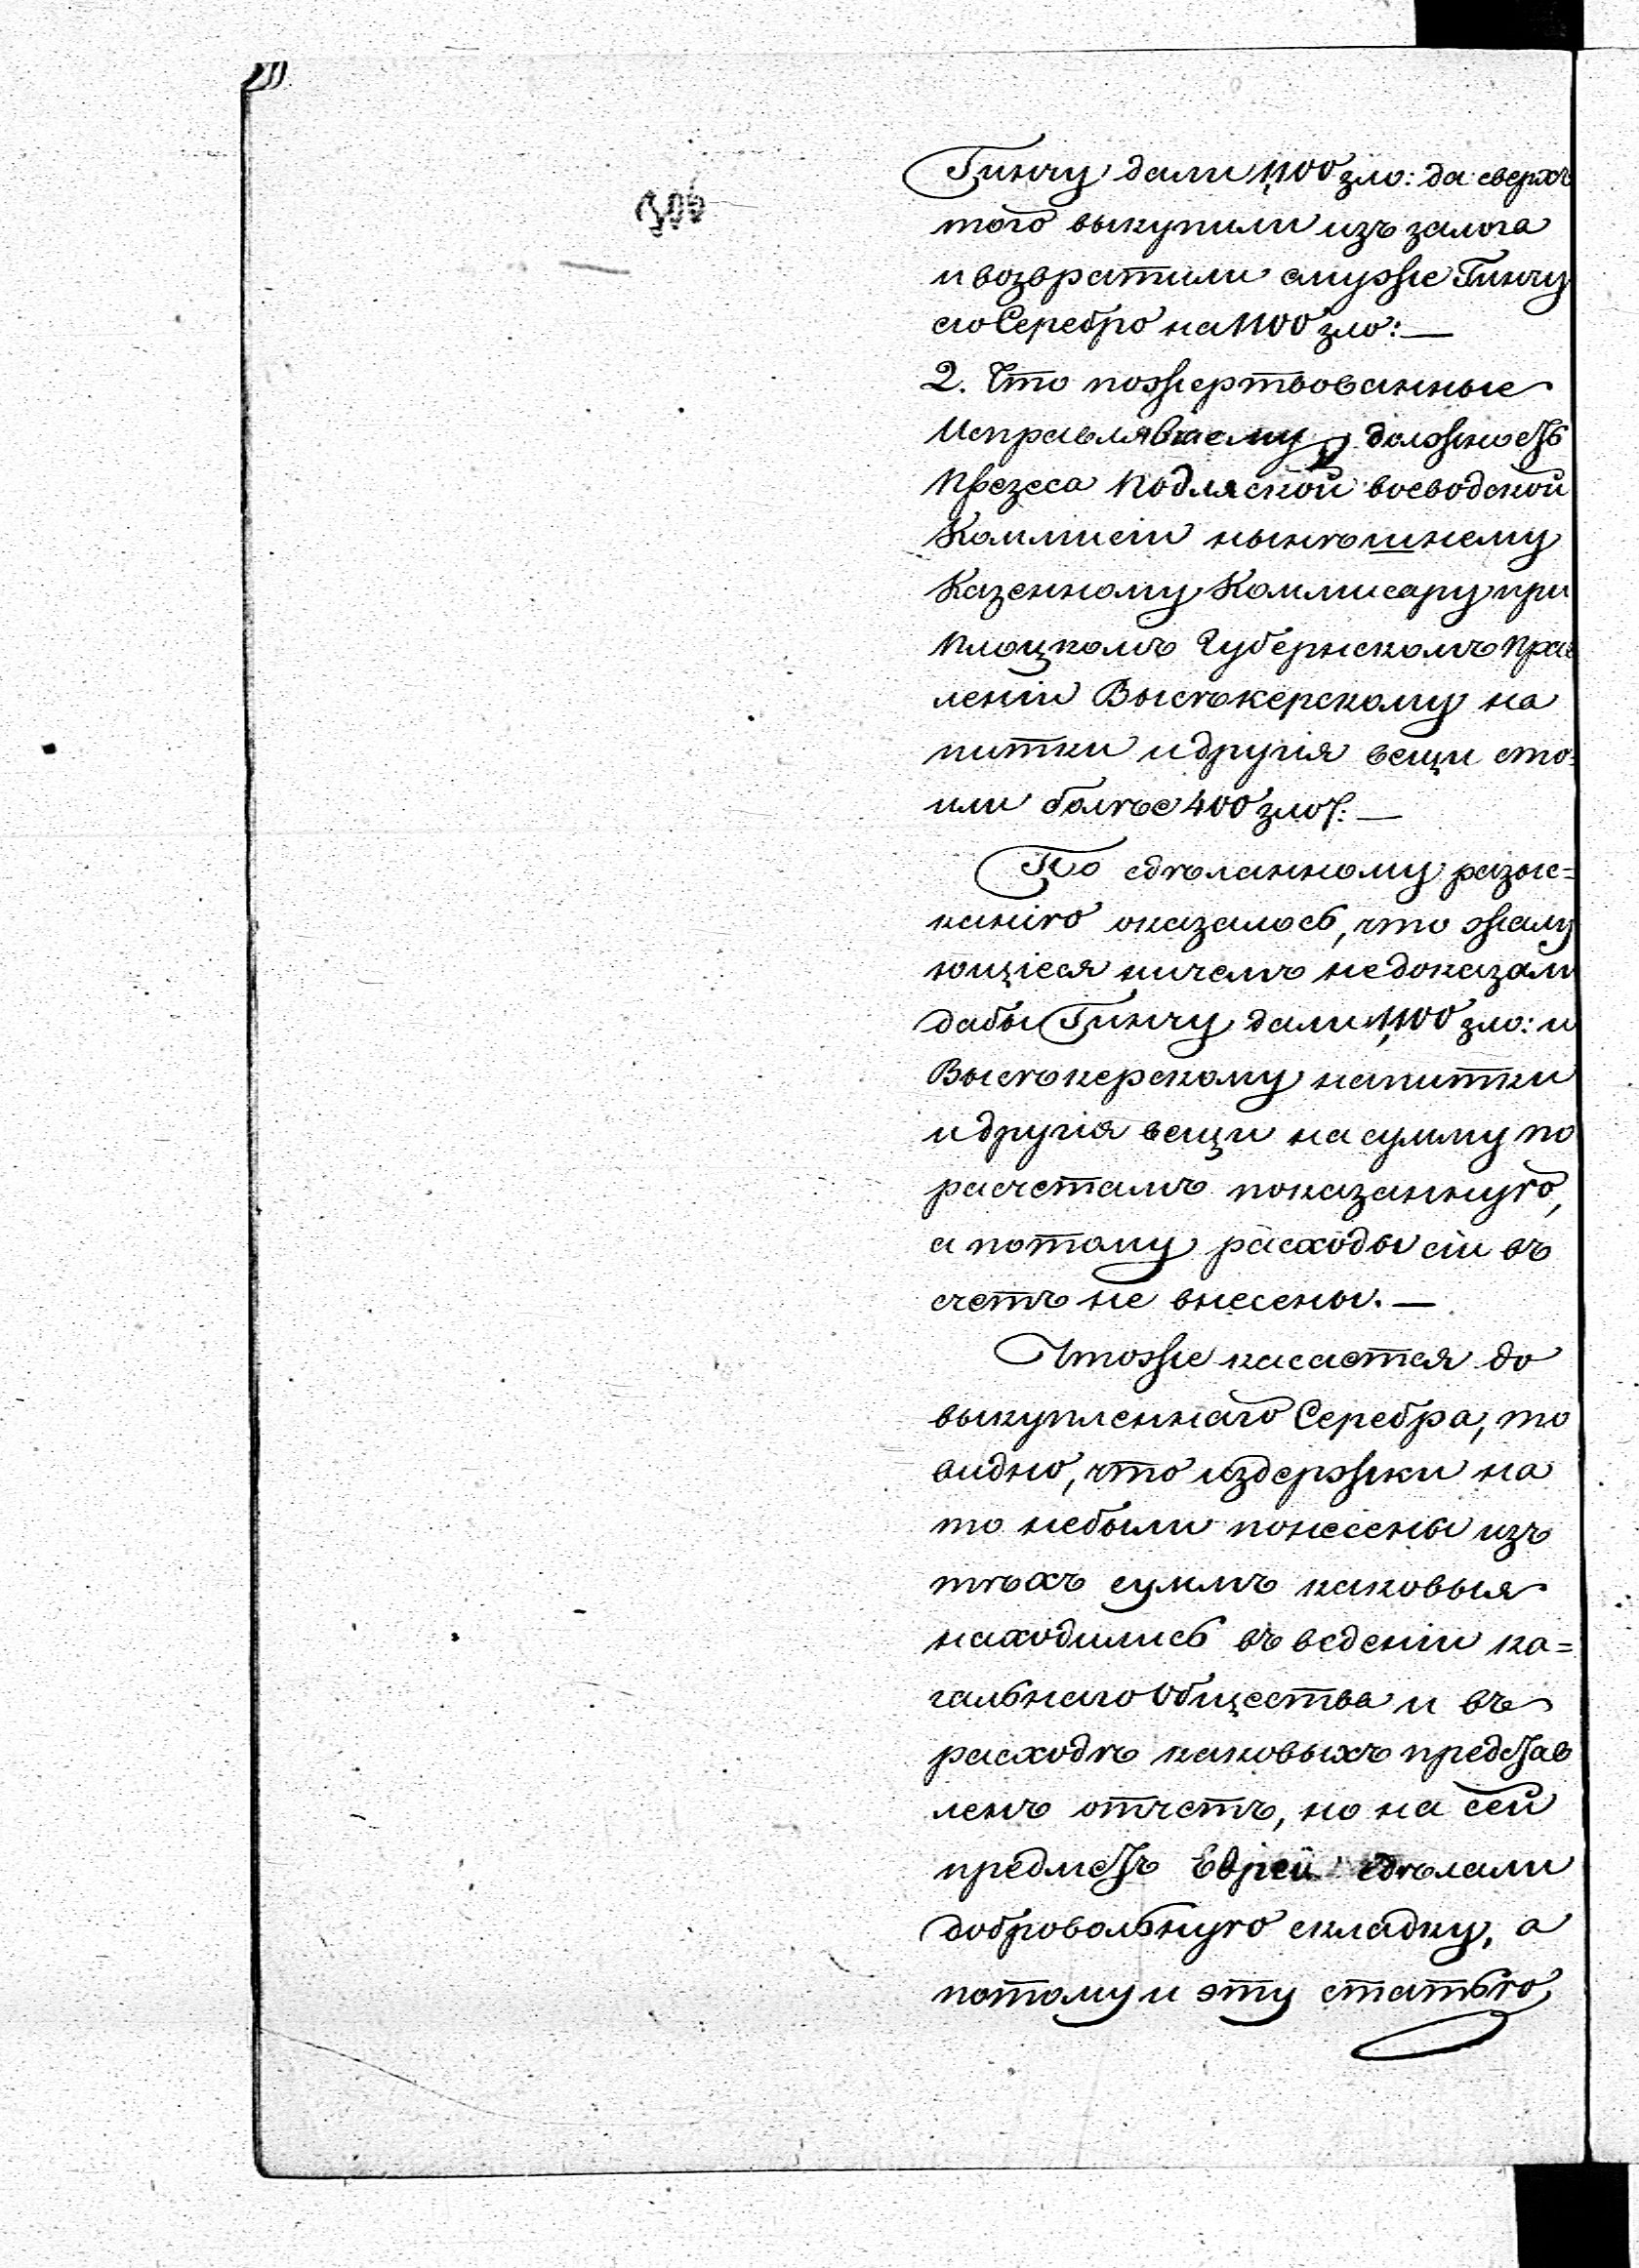 Гинчу дали 1,100 зло: да сверхъ
того выкупили изъ залога
и возвратили емуже Гинчу
его Серебро на 1100 зло: —
2. Что пожертвованные
Исправлявшему должность
Президента Подляской воеводской
Коммисіи нынѣшнему
Казенному Коммисару при
Плоцкомъ Губернскомъ Прав
леніи Высѣкерскому на
питки и другія вещи сто=
или болѣе 400 злот: —
По сдѣланному разыс=
канію оказалось, что жалу
ющіеся ничемъ не доказали
дабы Гинчу дали 1,100 зло: и
Высѣкерскому напитки
и другія вещи на сумму по
расчетамъ показанную,
а потому расходы сіи въ
счетъ не внесены. —
Чтоже касается до
выкупленнаго Серебра, то
видно, что издержки на
то небыли понесены изъ
тѣхъ суммъ каковыя
находились въ ведении ка=
гальнаго Общества и въ
расходѣ каковыхъ представ
ленъ отчетъ, но на сей
предметъ Евреи сдѣлали
добровольную складку, а
потому и эту статью